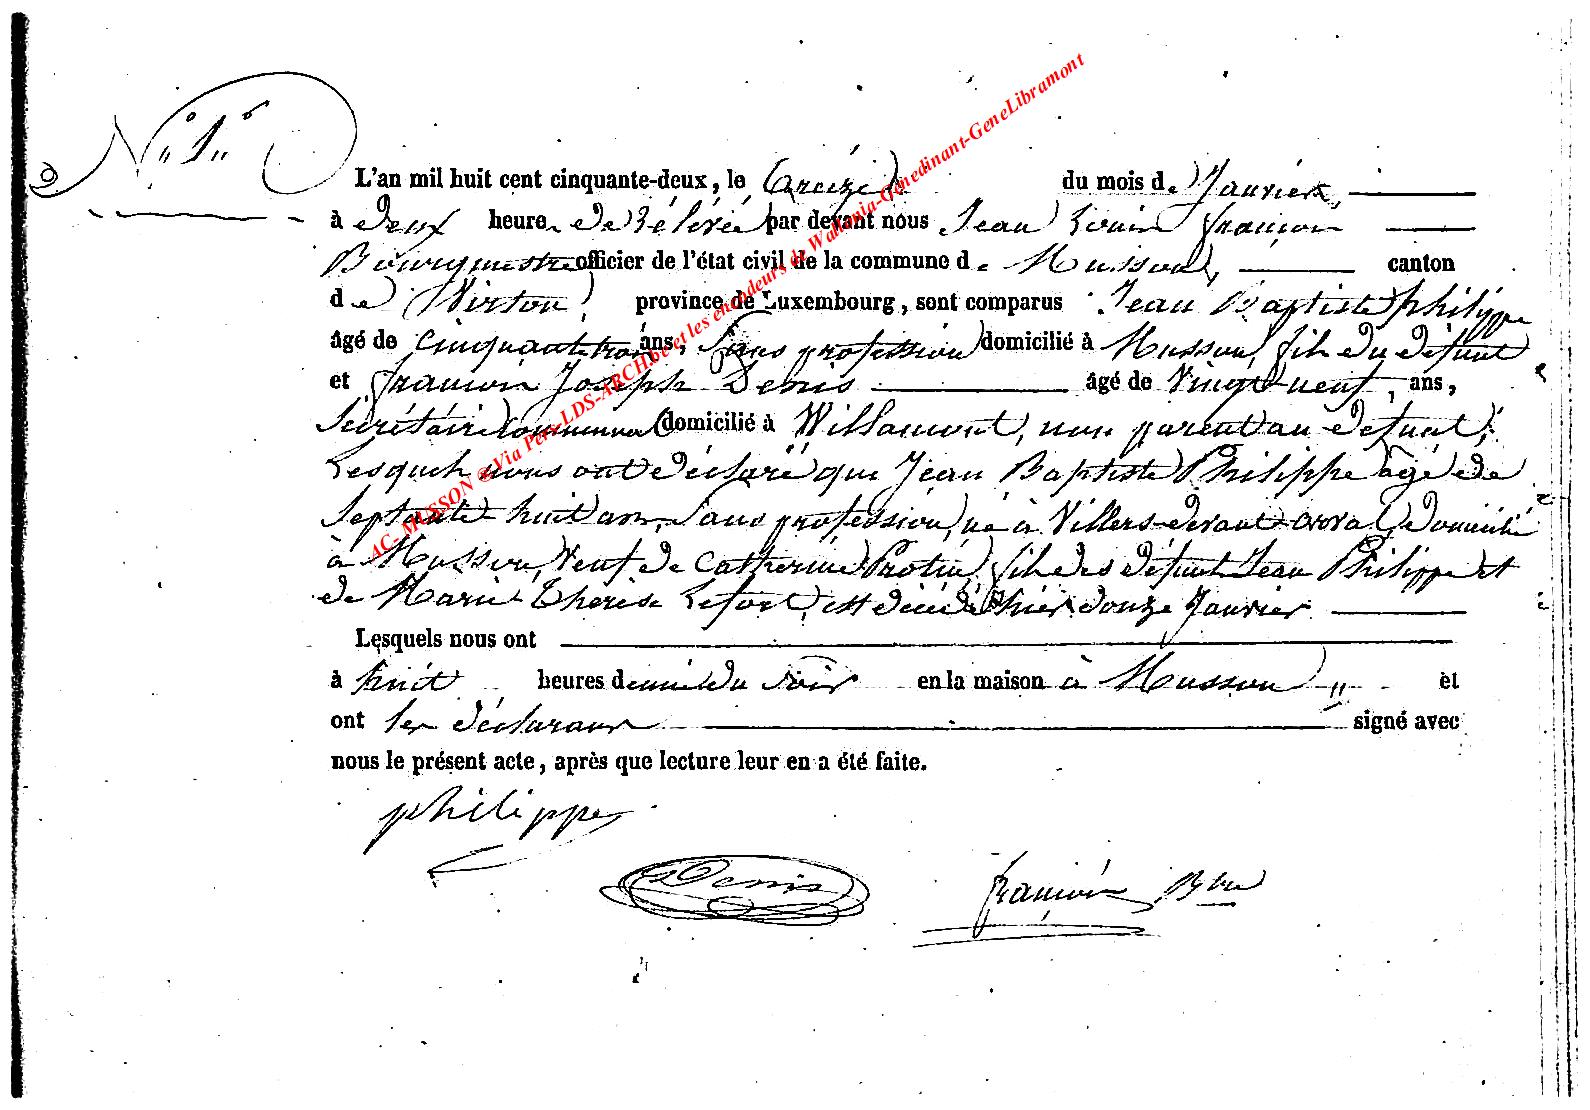 N° 1er
L'an mil huit cent cinquante-deux, le treize du mois de Janvier,
à deux heure de rélévée par devant nous Jean Louis françois
Bourgmestre officier de l'état civil de la commune de Musson, canton
de Virton, province de Luxembourg, sont comparus Jean Baptiste philippe
âgé de cinquante trois ans, sans profession domicilié à Musson, fils du défunt
et françois Joseph Denis âgé de vingt neuf, ans,
Secrétaire communal domicilié à Willancourt, non parent au défunt,
Lesquels nous ont déclaré que Jean Baptiste Philippe âgé de
septante huit ans, sans profession, né à Villers-devant-orval, domicilié
à Musson, veuf de Catherine Protin, fils des défunt Jean Philippe et
de Marie Therèse Lefort, est décédé hier douze Janvier
Lesquels nous ont
à huit heures demie du soir en la maison à Musson et
ont les déclarans signé avec
nous le présent acte, après que lecture leur en a été faite.
philippe
Denis
françois Bre
AC-MUSSON ® Via Pers-LDS-ARCHbe et les encodeurs de Wallonia-Genedinant-GeneLibramont